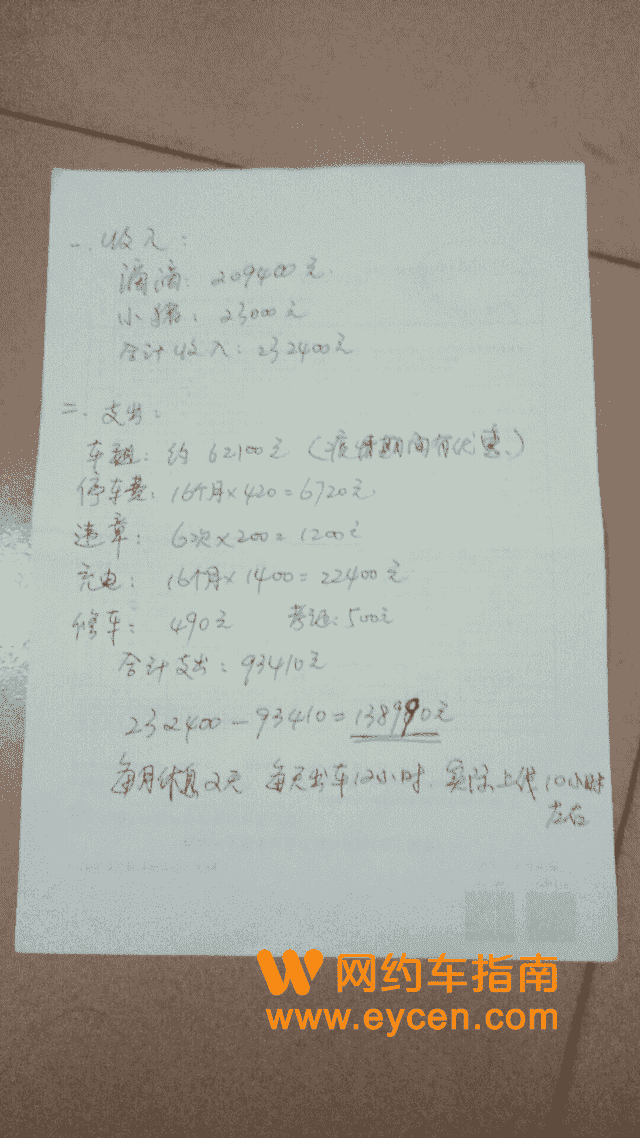 一. 收入:
滴滴: 209400元.
小猪: 23000元
合计收入: 232400元
二. 支出:
车租: 约 62100元 (疫情期间有优惠.)
停车费: 16个月×420=6720元.
违章: 6次×200=1200元
充电: 16个月×1400=22400元
修车: 490元 考证:500元
合计支出: 93410元
232400-93410=138990元
每月休息2天 每天出车12小时. 实际上线10小时
左右
网约车指南
www.eycen.com